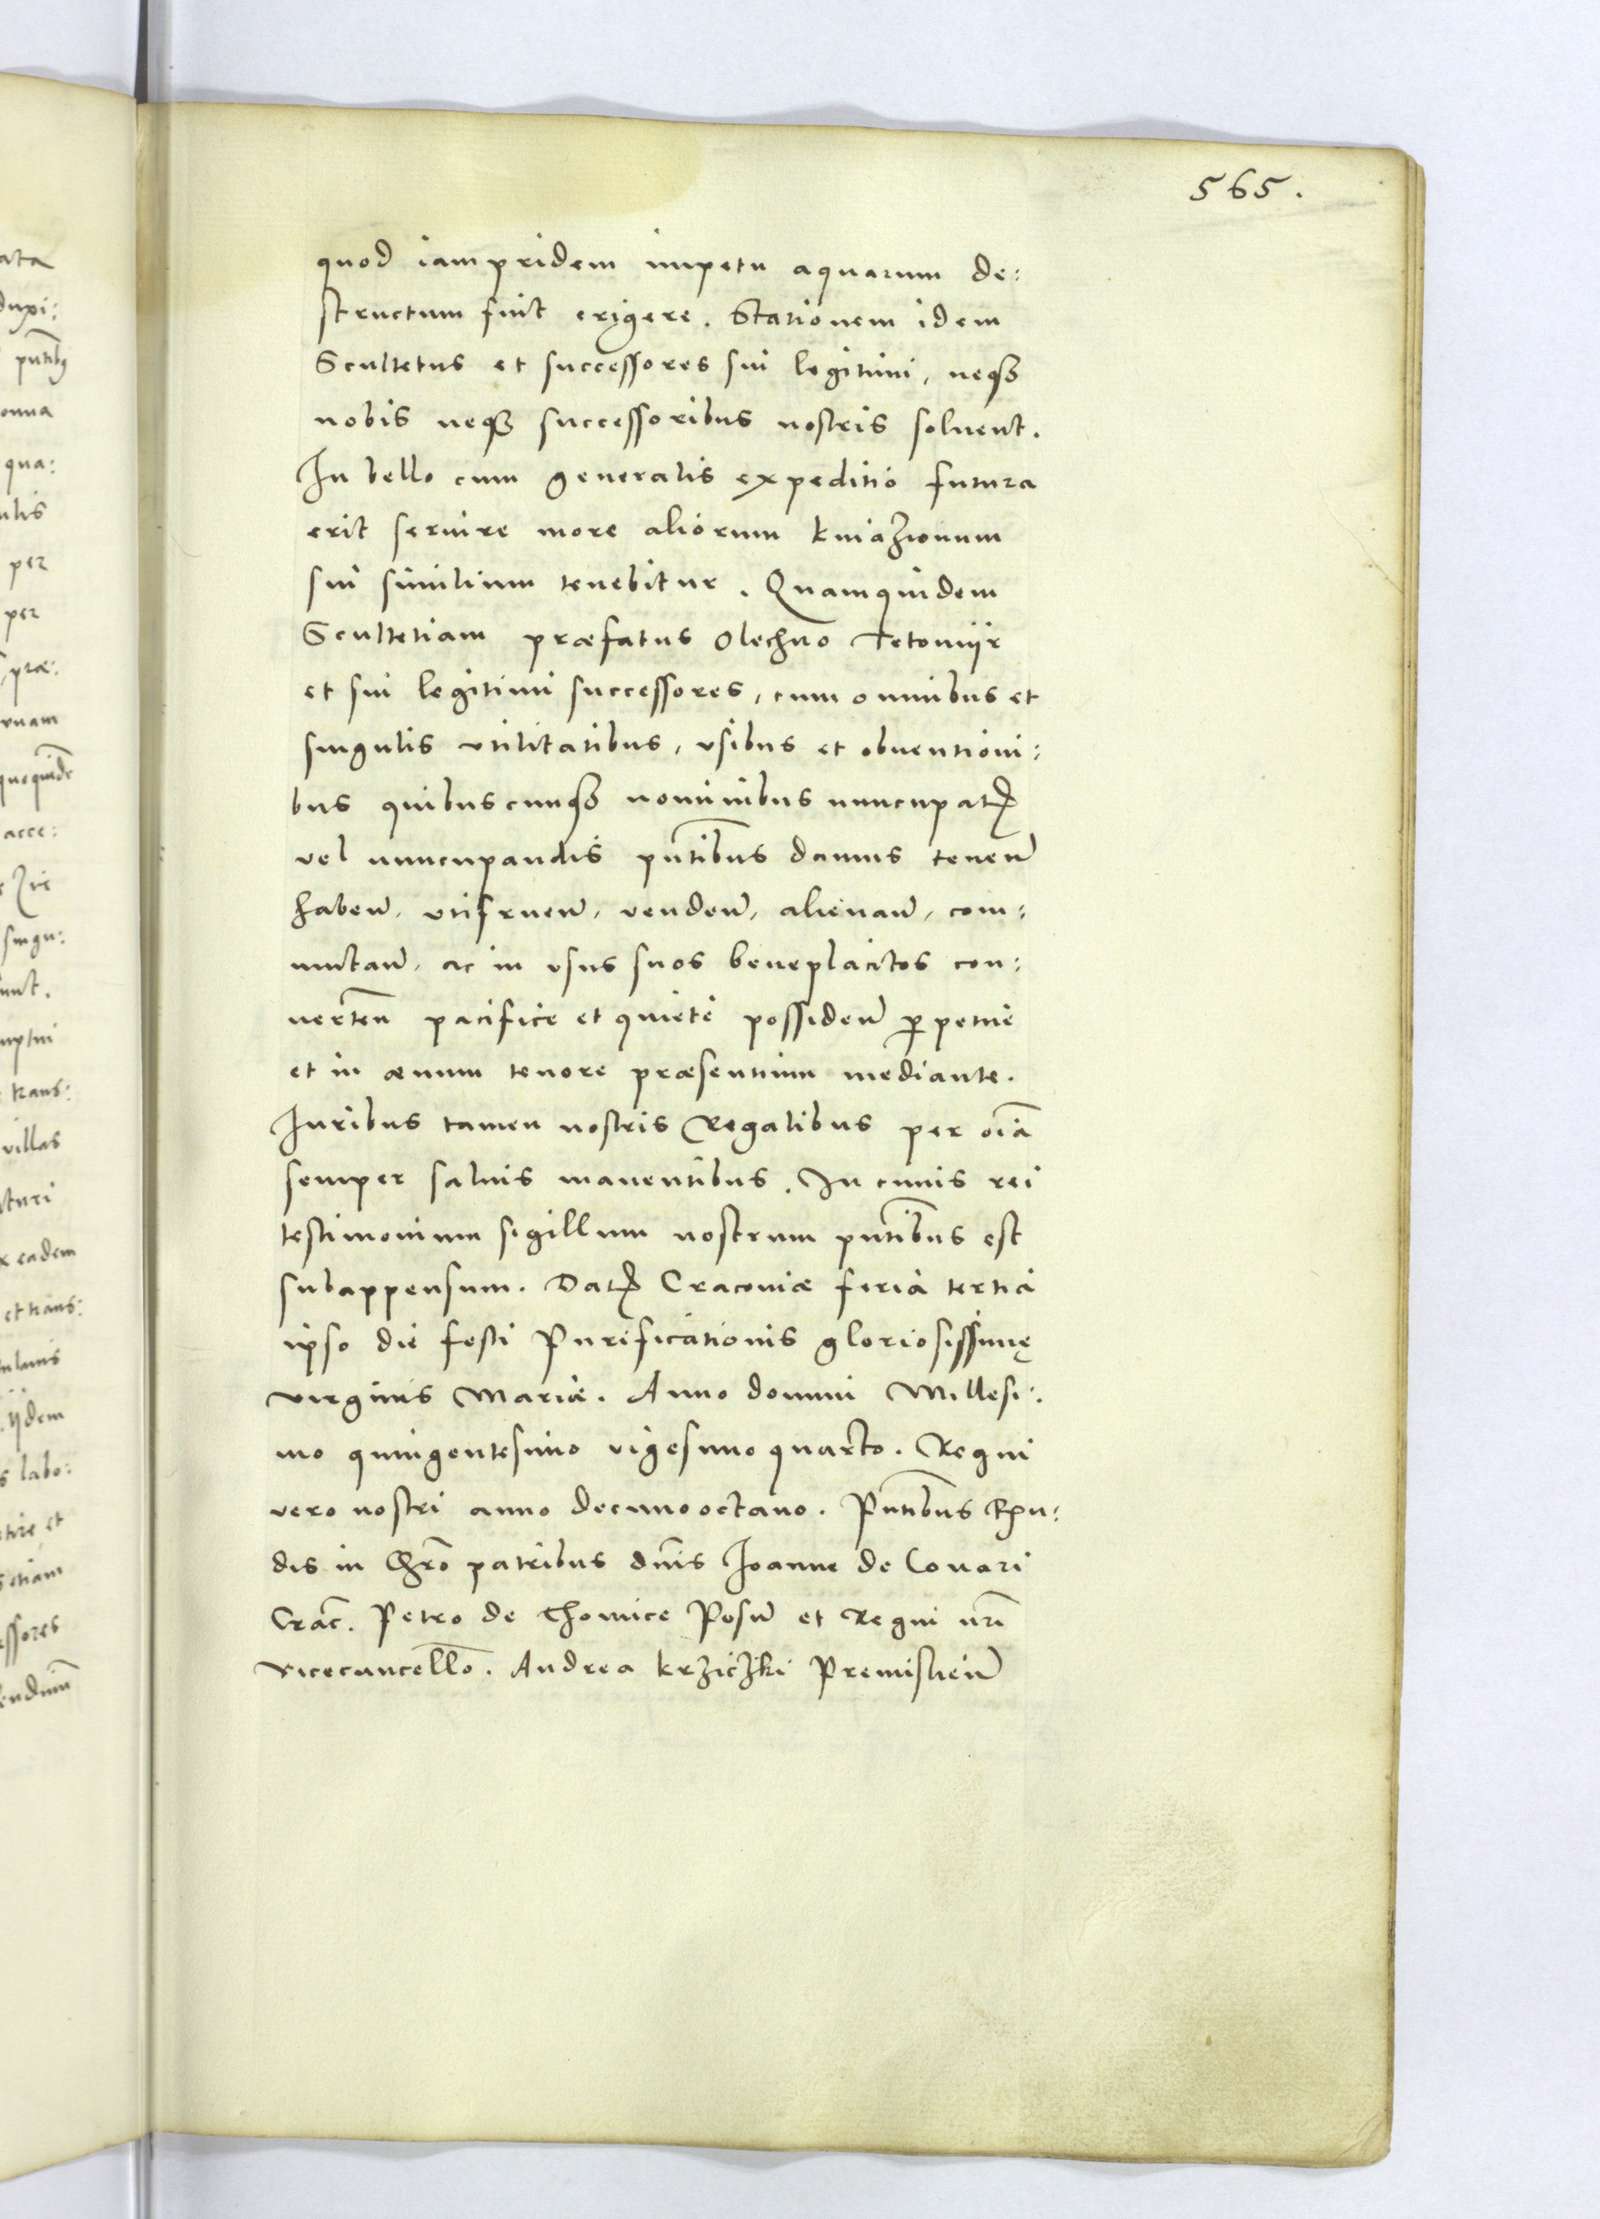 565.
quod iampridem impetu aquarum de:
structum fuit erigere. Stationem idem
Scultetus et successores sui legitimi, neqꝫ
nobis neqꝫ successoribus nostris soluent.
In bello cum generalis expeditio futura
erit seruire more aliorum kniazionum
sui similium tenebitur. Quamquidem
Scultetiam præfatus Olechno Tetomijr
et sui legitimi successores, cum omnibus et
singulis vtilitatibus, vsibus et obuentioni:
bus quibuscunqꝫ nominibus nuncupatꝭ
vel nuncupandis pn̄tibus damus tenen̄
haben̄, vtifruen̄, venden̄, alienan̄, com:
mutan̄, ac in vsus suos beneplacitos con:
uerten̄ pacifice et quiete possiden̄ ꝑpetue
et in æuum tenore præsentium mediante.
Iuribus tamen nostris Regalibus per oīa
semper saluis manentibus. In cuius rei
testimonium sigillum nostrum pn̄tibus est
subappensum. Datꝭ Cracouiæ feria tertia
ipso die festi Purificationis gloriosissimę
virginis Mariæ. Anno domini Millesi:
mo quingentesimo vigesimo quarto. Regni
vero nostri anno decimooctauo. Pn̄tibus Rn̄:
dis in Chr̄o patribus dn̄is Ioanne de Conari
Crac̄. Petro de Thomice Posn̄ et Regni nr̄i
vicecancellō. Andrea krziczki Premislien̄
ata
duxi:
pn̄tibꝫ
omna
qua:
ulis
per
per
præ:
acce:
singu:
trans:
villas
turi
eadem
et trans:
ijdem
labo:
et
etiam
ssores